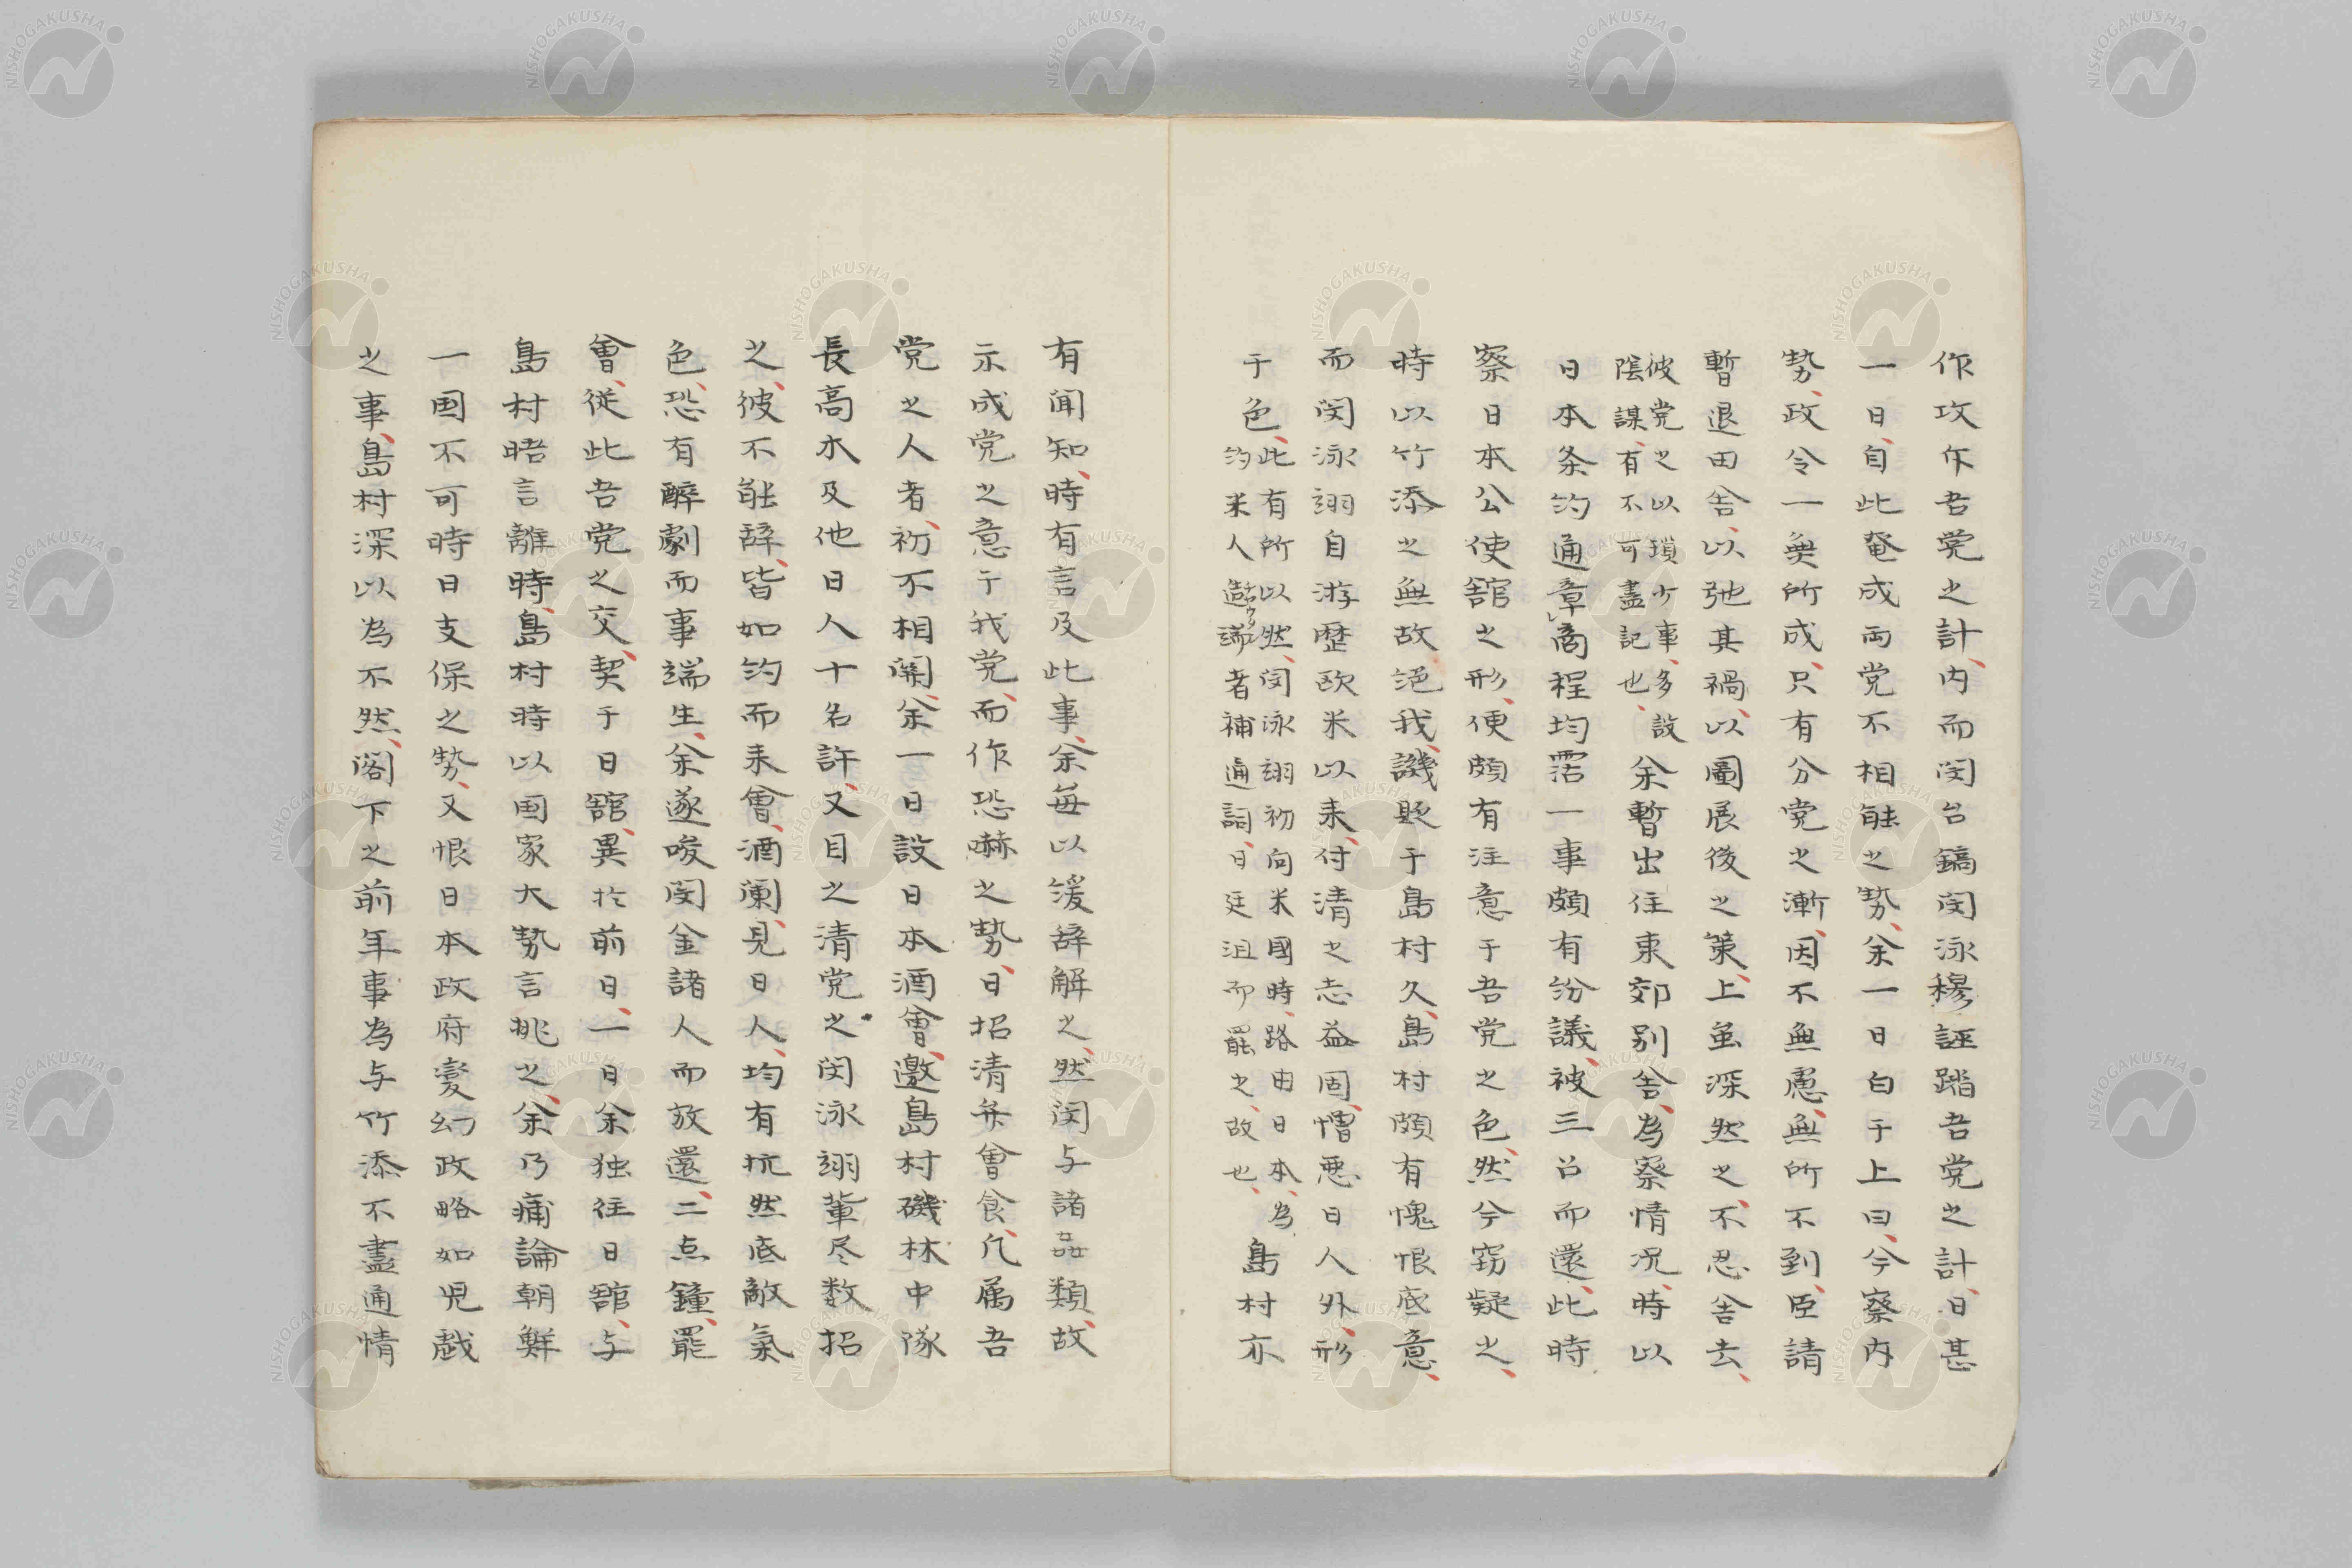 作攻乍吾党之計、内而閔台鎬閔泳穆誣踏吾党之計、日甚
一日、自此奄成両党不相能之勢、余一日白于上曰、今察内
勢、政令一無所成、只有分党之漸、因不無慮、無所不到、臣請
暫退田舎、以弛其禍、以圖展後之策、上虽深然之、不忍舎去、
彼党之以瑣少事、多設
陰謀、有不可盡記也、
余暫出住東郊別舎、為察情况、時以
日本条約通章商程均霑一事頗有紛議、被三召而還、此時
察日本公使舘之形、便頗有注意于吾党之色、然今窃疑之、
時以竹添之無故絶我、譏貶于島村久、島村頗有愧恨底意、
而閔泳翊自游歴欧米以来、付清之志益固、憎悪日人、外形
于色、
此有所以然、閔泳翊初向米國時、路由日本、為
約米人造端者補通詞、日廷沮而罷之、故也、
島村亦
有聞知、時有言及此事、余毎以緩辞解之、然閔与諸姦類、故
示成党之意于我党、而作恐嚇之勢、日招清弁會食、凡属吾
党之人者、初不相関、余一日設日本酒會、邀島村磯林中隊
長高木及他日人十名許、又目之清党之閔泳翊輩尽数招
之、彼不能辞、皆如約而来會、酒闌、見日人、均有抗然底敵氣
色、恐有酔劇而事端生、余遂唆閔金諸人而放還、二点鐘、罷
會、従此吾党之交、契于日舘、異於前日、一日余独往日舘、与
島村晤言離時、島村時以国家大勢言挑之、余乃痛論朝鮮
一国不可時日支保之勢、又恨日本政府変幻政略如児戯
之事、島村深以為不然、閣下之前年事為与竹添不盡通情